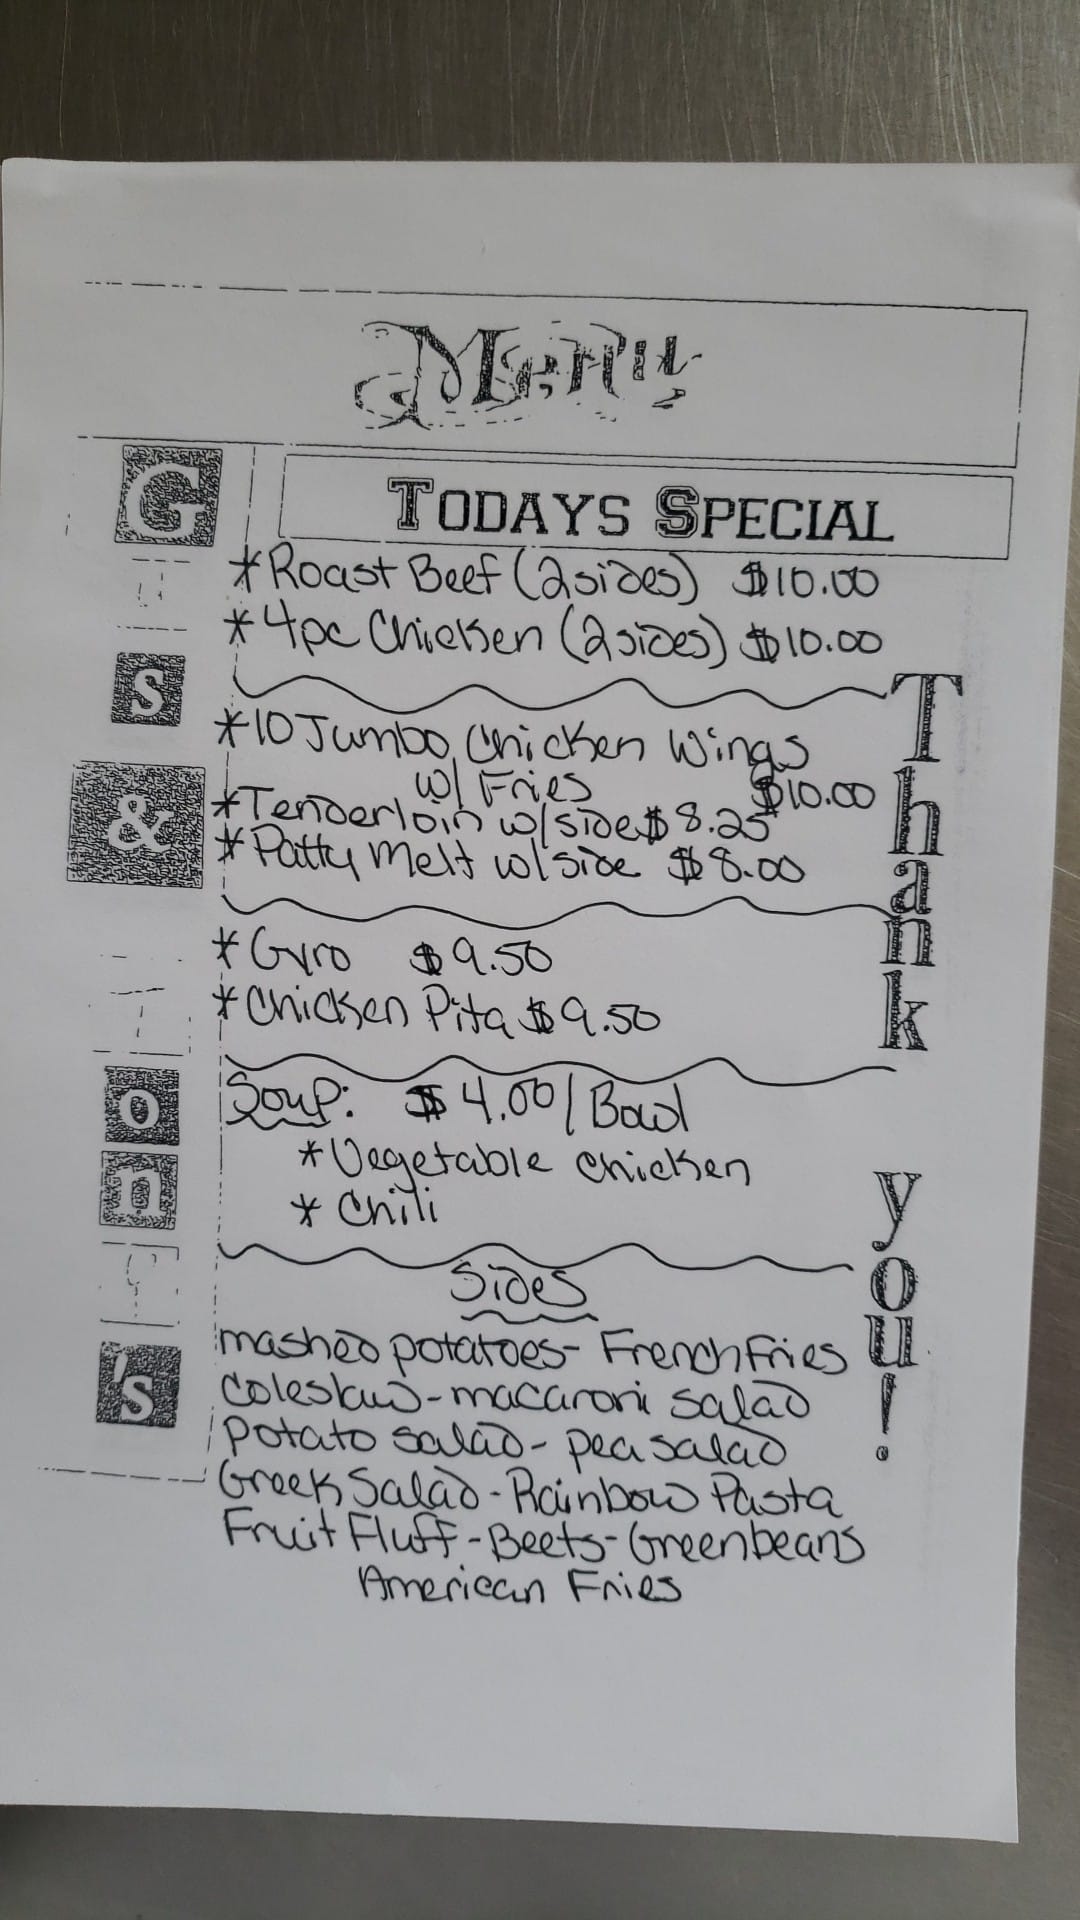 Menu
TODAYS SPECIAL
*Roast Beef (2 sides) $10.00
*4pc Chicken (2 sides) $10.00
*10 Jumbo Chicken Wings
w/ Fries $10.00
*Tenderloin w/side $8.25
*Patty Melt w/side $8.00
*Gyro $9.50
*Chicken Pita $9.50
Soup: $4.00/Bowl
*Vegetable Chicken
*Chili
Sides
mashed potatoes- French Fries
coleslaw-macaroni salad
potato salad- pea salad
Greek Salad-Rainbow Pasta
Fruit Fluff-Beets-Greenbeans
American Fries
Thank you!